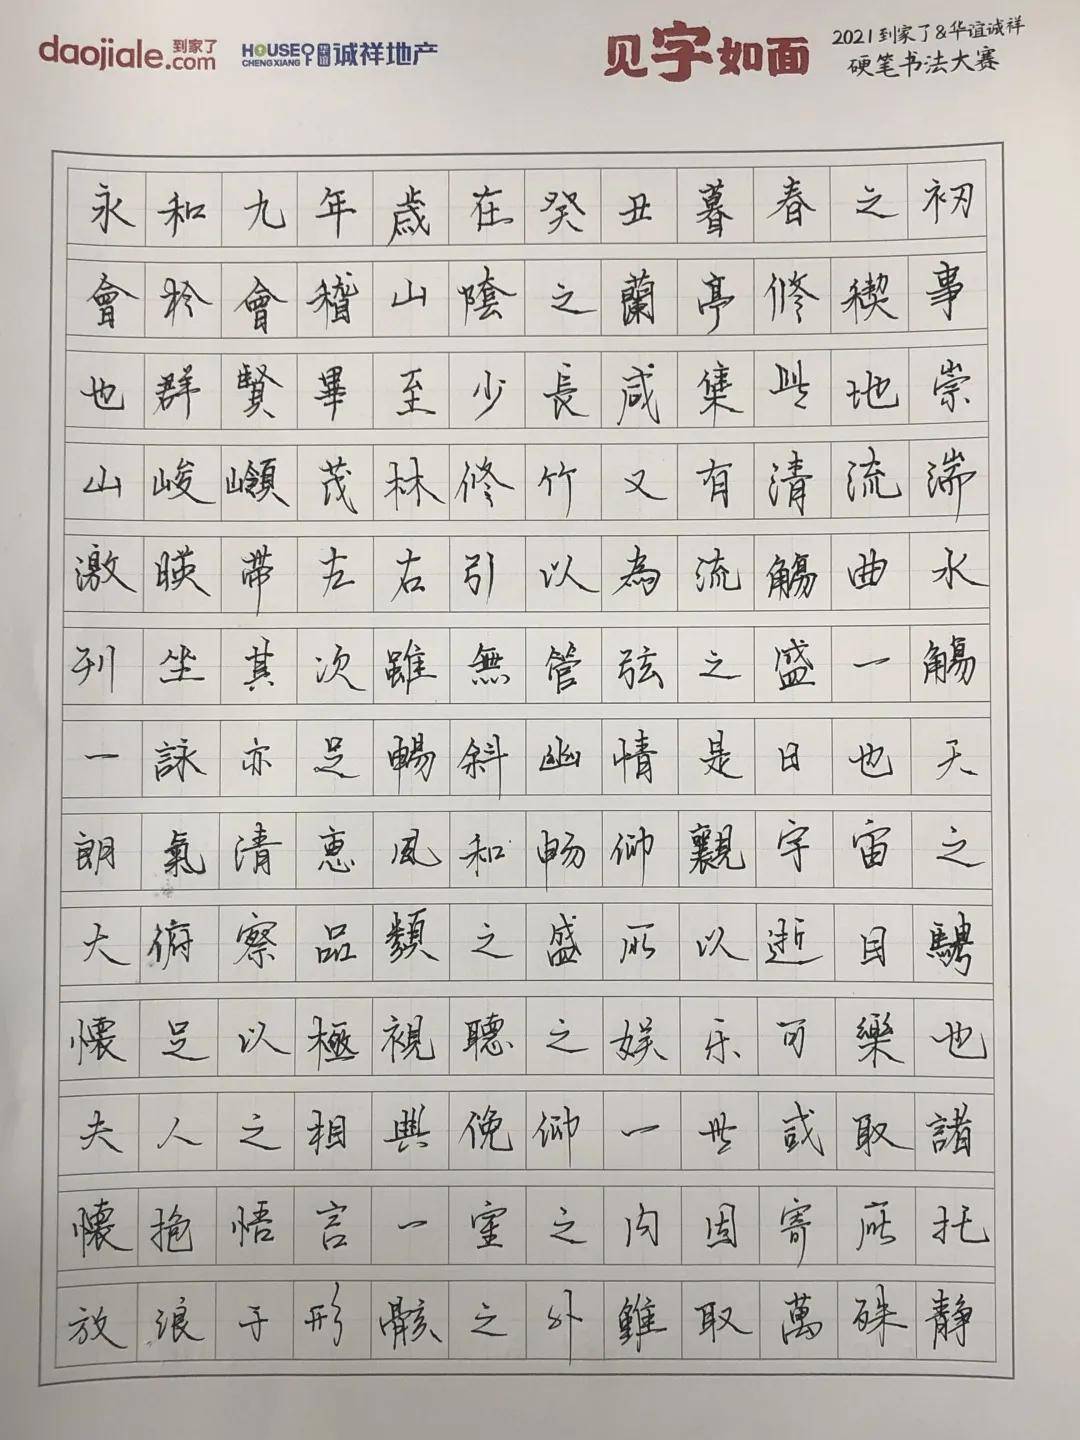 daojiale.com 到家了
HOUSE 华谊 CHENGXIANG 诚祥地产
见字如面
2021到家了&华谊诚祥
硬笔书法大赛
永和九年歲在癸丑暮春之初
會於會稽山陰之蘭亭修稧事
也群賢畢至少長咸集此地崇
山峻嶺茂林修竹又有清流湍
激暎帶左右引以為流觴曲水
列坐其次雖無管弦之盛一觴
一詠亦足暢敘幽情是日也天
朗氣清惠風和畅仰觀宇宙之
大俯察品類之盛所以遊目騁
懷足以極視聽之娱乐可樂也
夫人之相與俛仰一世或取諸
懷抱悟言一室之内因寄所托
放浪于形骸之外雖取萬殊静